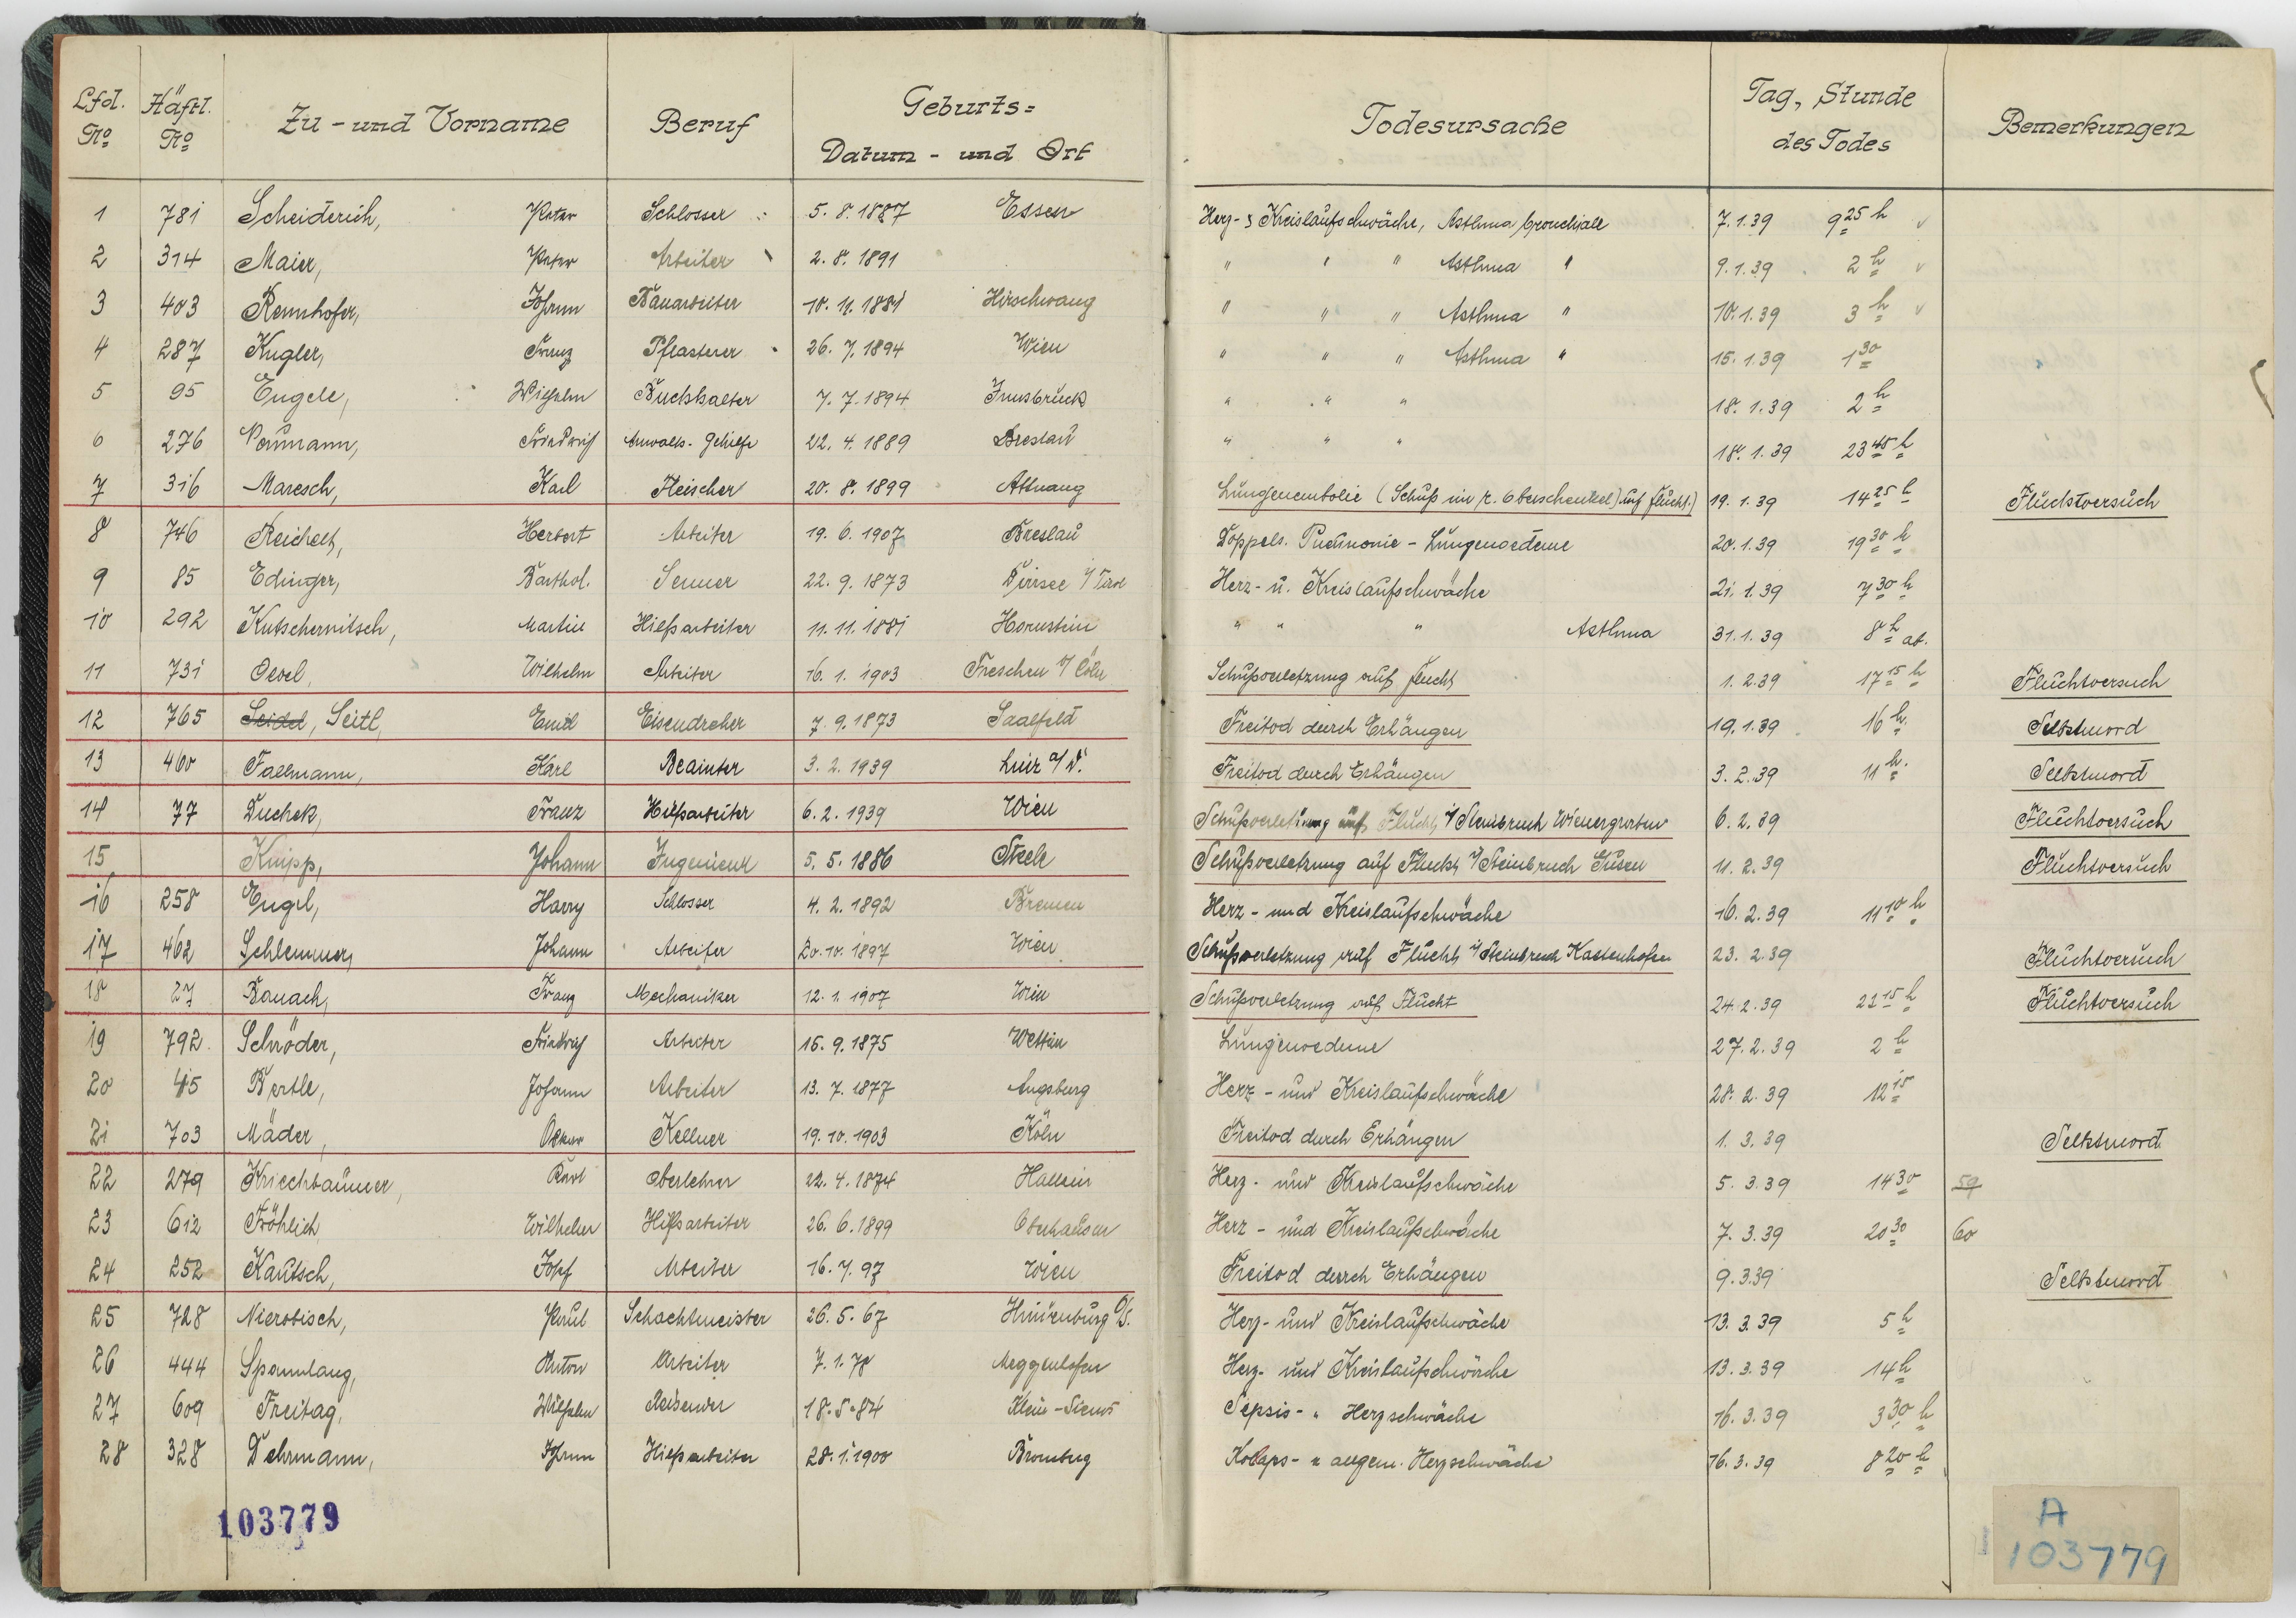 Lfd. No Häftl. No Zu - und Vorname Beruf Geburts= Datum - und Ort Todesursache Tag, Stunde des Todes Bemerkungen
1 781 Scheiderich, Peter Schlosser 5. 8. 1887 Essen Herz- & Kreislaufschwäche, Asthma bronchiale 7.1.39 9 25 h
2 314 Maier, Peter Arbeiter 2. 8. 1891 " " " Asthma " 9.1.39 2 h
3 403 Rennhofer, Johann Bauarbeiter 10. 11. 1881 Hirschwang " " " Asthma " 10.1.39 3 h
4 287 Kugler, Franz Pflasterer 26. 7. 1894 Wien " " " Asthma " 15.1.39 1 30
5 95 Engele, Wilhelm Buchhalter 7. 7. 1894 Innsbruck " " " 18.1.39 2 h
6 276 Naumann, Friedrich Anwalts-Gehilfe 22. 4. 1889 Breslau " " " 18.1.39 23 45 h
7 316 Maresch, Karl Fleischer 20. 8. 1899 Attnang Lungenembolie (Schuß im r. Oberschenkel) auf Flucht.) 19.1.39 14 25 h Fluchtversuch
8 746 Reichelt, Herbert Arbeiter 19. 6. 1907 Breslau Doppels. Pneumonie - Lungenoedeme 20.1.39 19 30 h
9 85 Edinger, Barthol. Senner 22. 9. 1873 i/Tirol Herz- u. Kreislaufschwäche 21.1.39 7 30 h
10 292 Kutschernitsch, Martin Hilfsarbeiter 11. 11. 1881 Hornstein " " " Asthma 31.1.39 8 h ab.
11 731 Oevel, Wilhelm Arbeiter 16. 1. 1903 Freschen b/Cöln Schußverletzung auf Flucht 1.2.39 17 15 h Fluchtversuch
12 765 Seidel, Seitl, Emil Eisendreher 7. 9. 1873 Saalfeld Freitod durch Erhängen 19.1.39 16 h. Selbstmord
13 460 Fallmann, Karl Beamter 3. 2. 1939 a/D. Freitod durch Erhängen 3.2.39 11 h. Selbstmord
14 77 Duchek, Franz Hilfsarbeiter 6. 2. 1939 Wien Schußverletzung auf Flucht i/Steinbruch Wienergraben 6.2.39 Fluchtversuch
15 Knipp, Johann Ingenieur 5. 5. 1886 Steele Schußverletzung auf Flucht i/Steinbruch Gusen 11.2.39 Fluchtversuch
16 258 Engel, Harry Schlosser 4. 2. 1892 Bremen Herz - und Kreislaufschwäche 16.2.39 11 10 h
17 462 Schlemmer, Johann Arbeiter 20. 10. 1897 Wien Schußverletzung auf Flucht i/Steinbruch Kastenhofen 23.2.39 Fluchtversuch
18 27 Banach, Franz Mechaniker 12. 1. 1907 Wien Schußverletzung auf Flucht 24.2.39 22 15 h Fluchtversuch
19 792 Schröder, Friedrich Arbeiter 15. 9. 1875 Wettin Lungenoedeme 27.2.39 2 h
20 45 Bertle, Johann Arbeiter 13. 7. 1877 Augsburg Herz - und Kreislaufschwäche 28.2.39 12 15
21 703 Mäder, Oskar Kellner 19. 10. 1903 Köln Freitod durch Erhängen 1.3.39 Selbstmord
22 279 Kriechbaumer, Karl Oberlehrer 22. 4. 1874 Hallein Herz - und Kreislaufschwäche 5.3.39 14 30 59
23 612 Fröhlich Wilhelm Hilfsarbeiter 26. 6. 1899 Oberhausen Herz - und Kreislaufschwäche 7.3.39 20 30 60
24 252 Kautsch, Josef Arbeiter 16. 7. 97 Wien Freitod durch Erhängen 9.3.39 Selbstmord
25 728 Nierobisch, Paul Schachtmeister 26. 5. 67 O/S. Herz- und Kreislaufschwäche 13.3.39 5 h
26 444 Spannlang, Anton Arbeiter 7. 1. 78 Meggenhofen Herz- und Kreislaufschwäche 13.3.39 14 h
27 609 Freitag, Wilhelm Reisender 18. 5. 84 Sepsis- " Herzschwäche 16.3.39 3 30 h
28 328 Dehrmann, Johann Hilfsarbeiter 28. 1. 1900 Bromberg Kollaps- u allgem. Herzschwäche 16.3.39 8 20 h
103779
A
103779